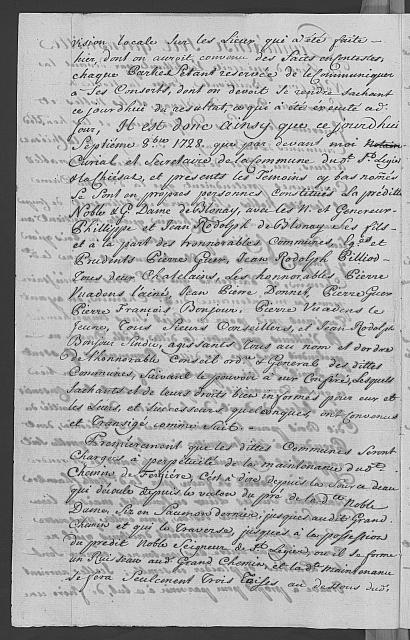 vision locale sur les Lieux qui a été faite
hier, dont on auroit convenu des faits contestes,
chaque Parties s'étant reservée de le Communiquer
à Ses Consorts, dont on devoit se rendre sachant
ce jourdhui du resultat, ce qui à été éxecuté ce d.
jour, Il est donc ainsy que ce jourdhui
Septième 8bre 1728. que par devant moi
Curial et Secretaire de la Commune du d. St. Legier
& la Chiésaz, et presents les Temoins cy bas només
Se sont en propres personnes Constitués la preditte
Noble & V. Dame de Blonay, avec les N. et Genereux
Philippe et Jean Rodolph de Blonay ses fils
et à la part des honnorables Communes,
Prudents Pierre Guex, Jean Rodolph Pilliod
tous deux Chatelains, Les honnorables, Pierre
Vuadens l'ainé, Jean Pierre Bonnet, Pierre Guex
Pierre François Bonjour, Pierre Vuadens le
jeune, tous Sieurs Conseillers, et Jean Rodolph
Bonjour Sindic, agissants tous au nom et d'ordre
de l'honnorable Conseil ordre. & General des dittes
Communes, Suivant le pouvoir à eux Conferé, Lesquels
Sachants et de leurs droits bien informés pour eux et
les Leurs, et successeurs quelconques, ont Convenus
et Transigé comme Suit.
Premierement que les dittes Communes Seront
Chargées à perpetuité de la maintenance du d.
Chemin de Ferreire, C'est à dire depuis la
qui découle depuis le vallon du pré de la d.te Noble
Dame, Sis en Jaumon dernier, jusques au dit Grand
Chemin et qui le Traverse, jusques à la possession
du predit Noble Seigneur de St. Legier, ou il se forme
un Ruisseau aud. Grand Chemin, et la d.te maintenance
Se fera Seulement Trois Toises au dessous dud.